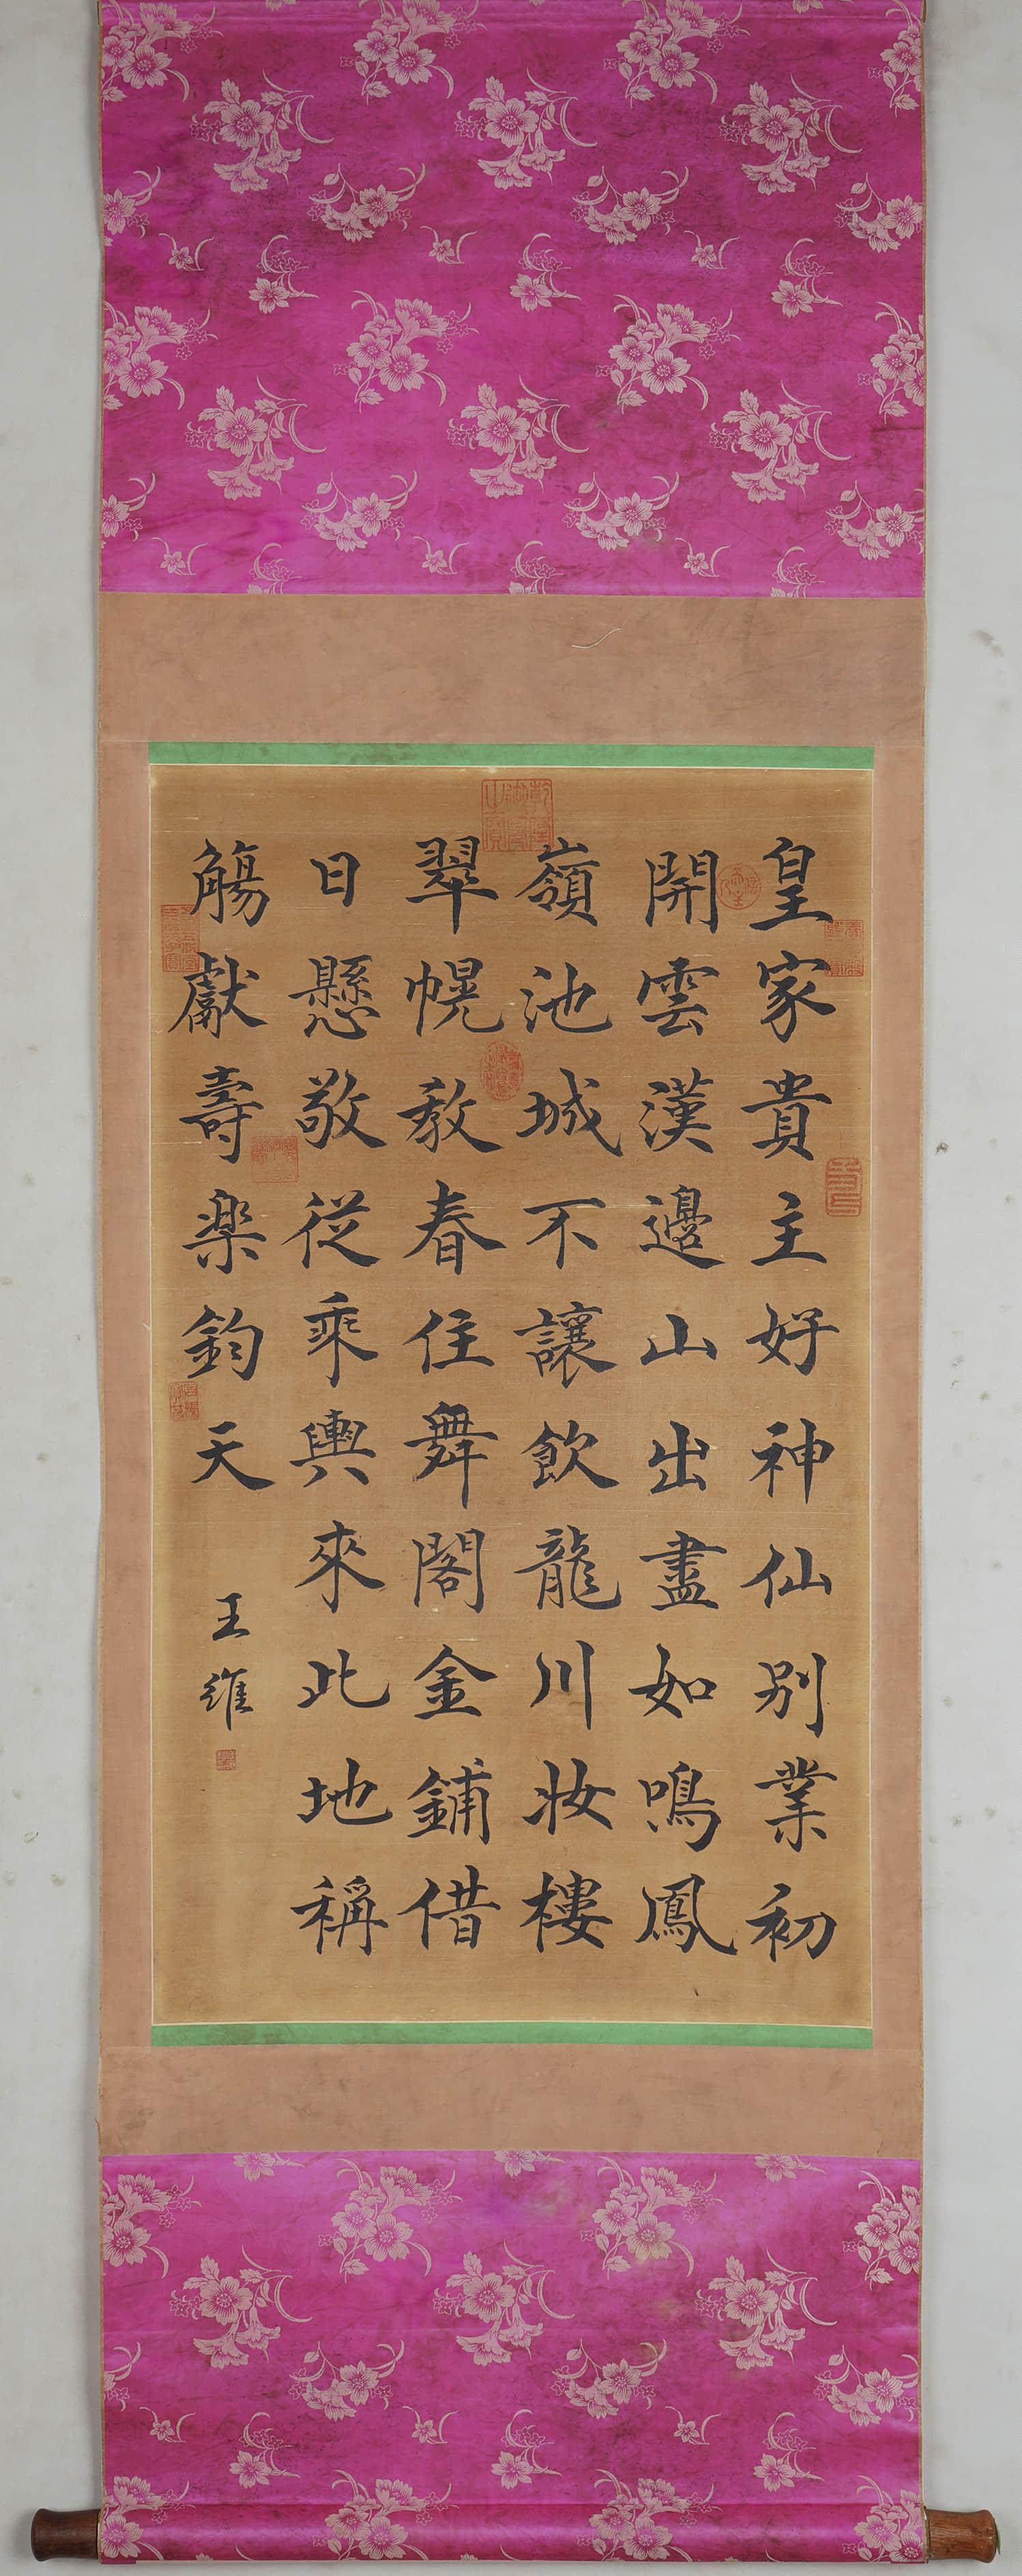 皇家貴主好神仙別業初
開雲漢邊山出盡如鳴鳳
嶺池城不讓飲龍川妝樓
翠幌教春住舞閣金鋪借
日懸敬從乘輿來此地稱
觴獻壽樂鈞天
王維